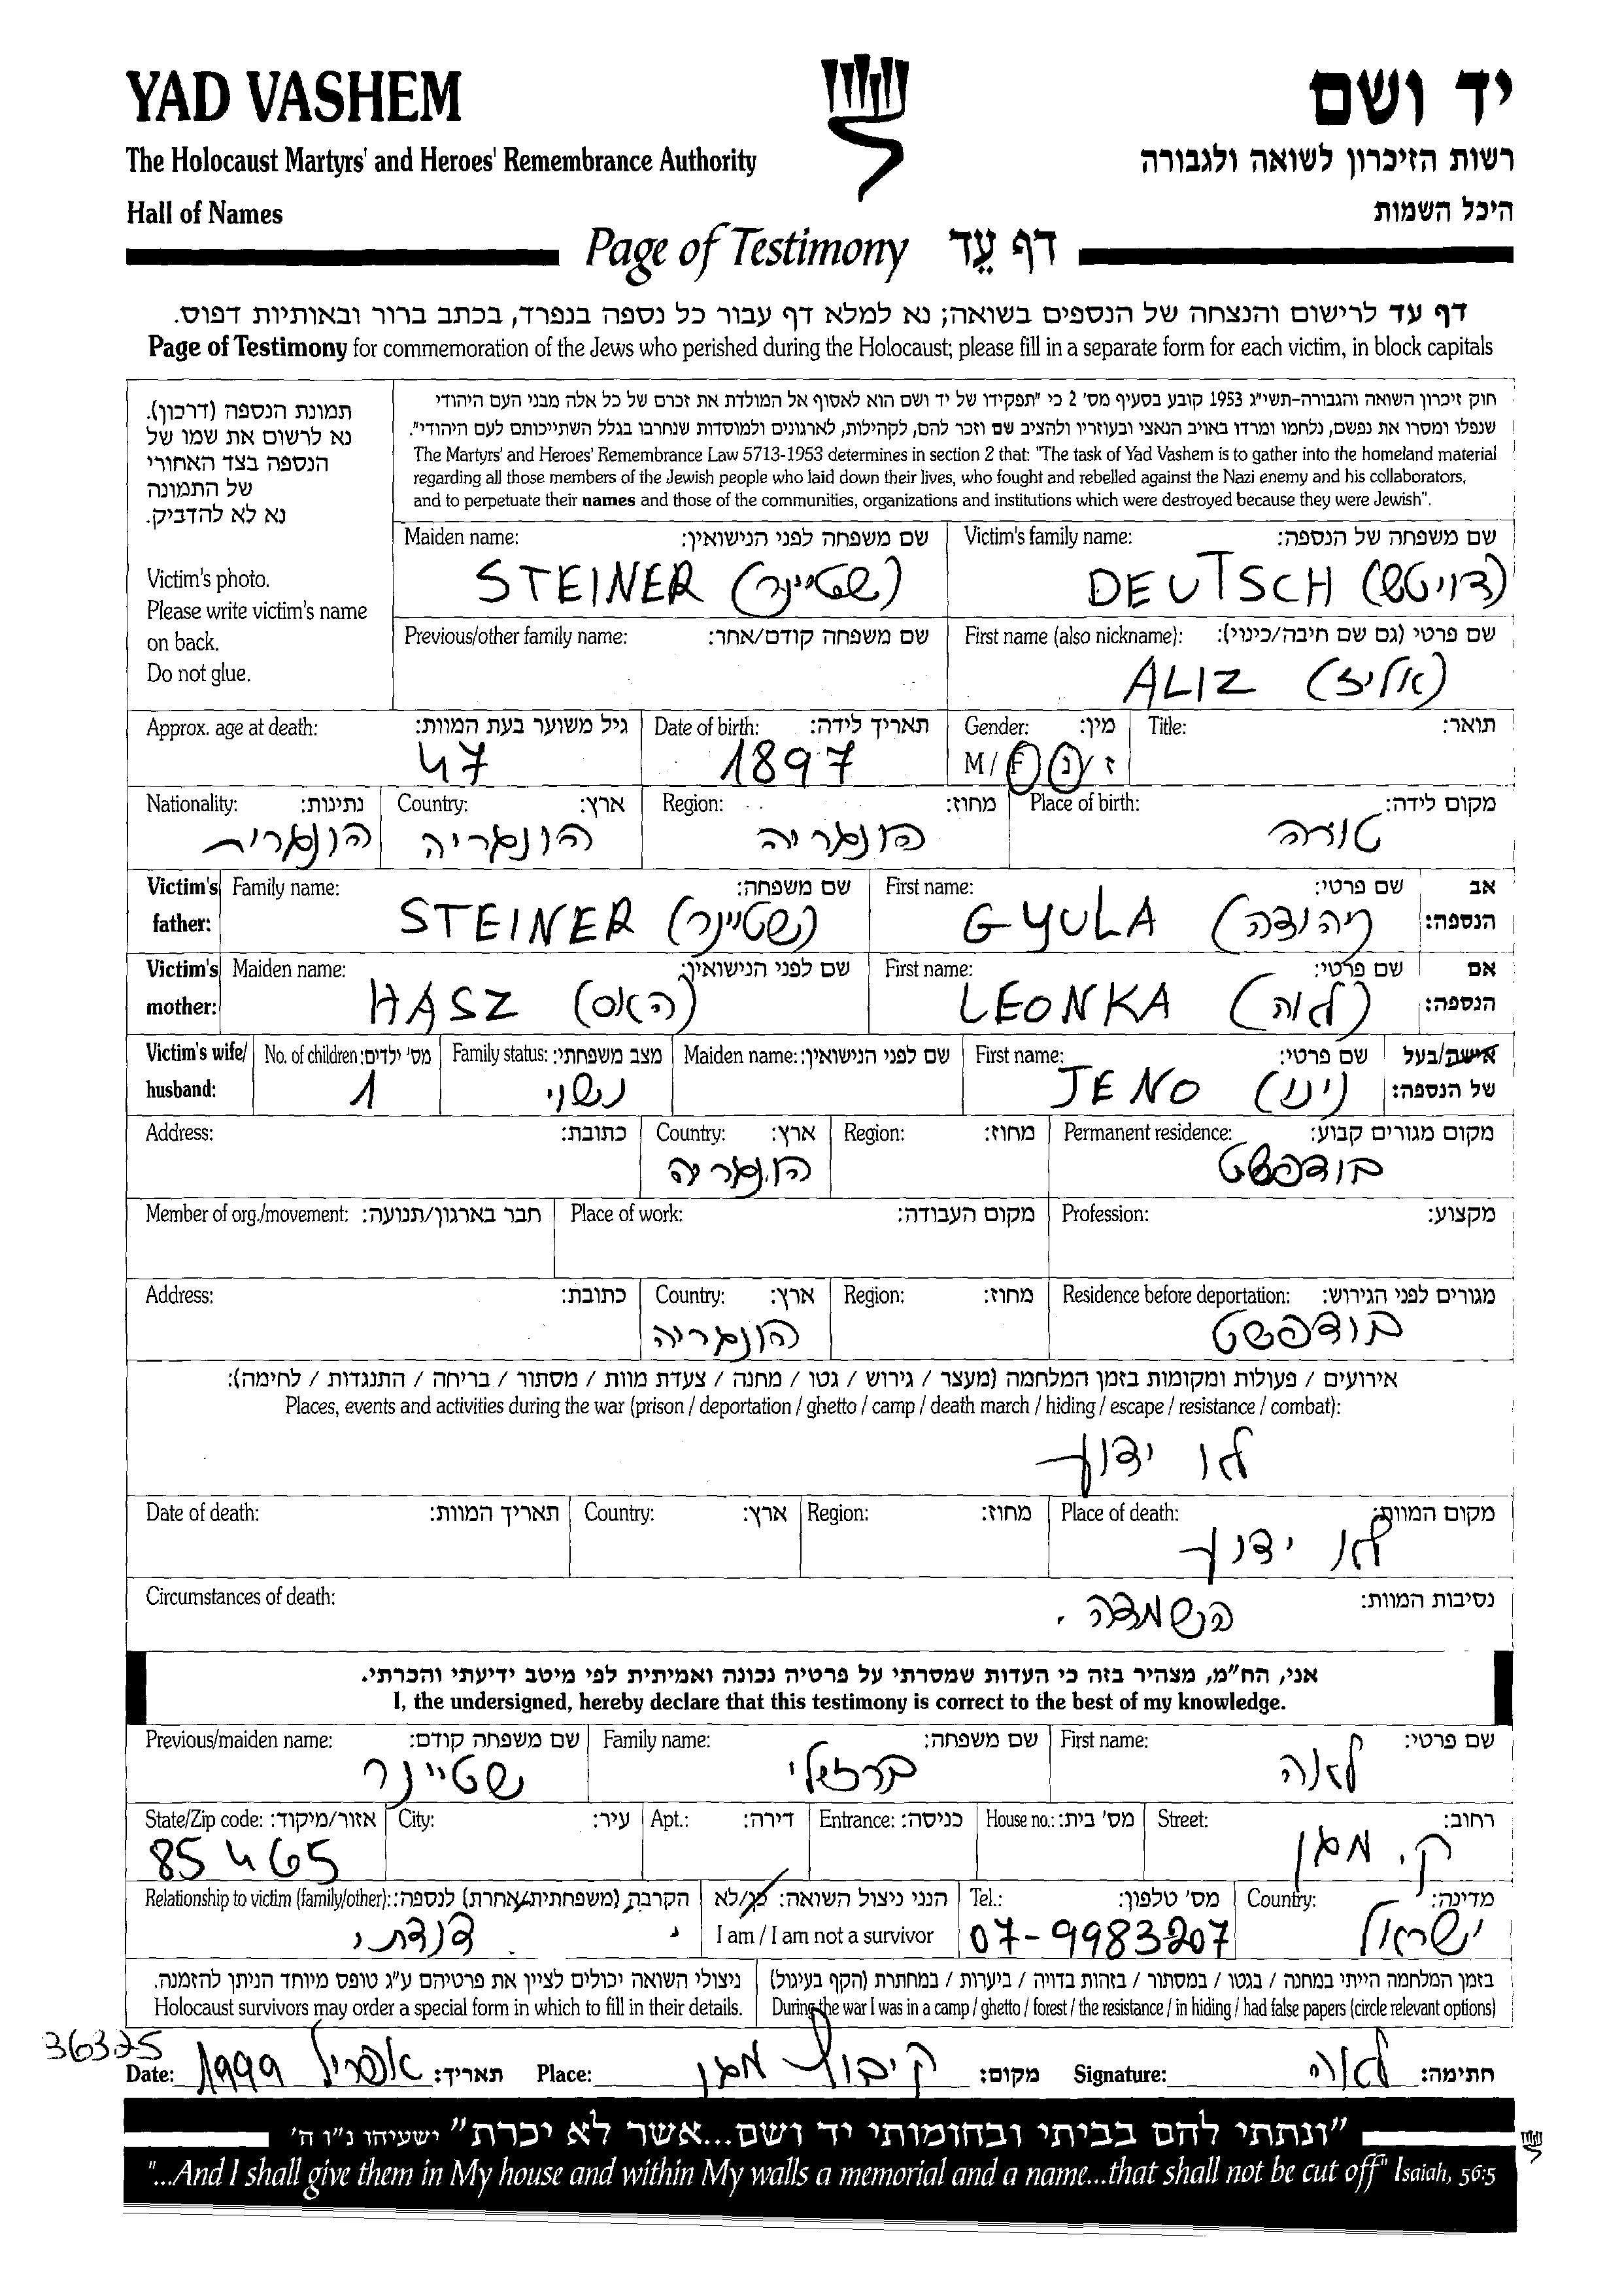 YAD VASHEM
יד ושם
The Holocaust Martyrs' and Heroes' Remembrance Authority
רשות הזיכרון לשואה ולגבורה
Hall of Names
היכל השמות
Page of Testimony דף עֵד
דף עד לרישום והנצחה של הנספים בשואה; נא למלא דף עבור כל נספה בנפרד, בכתב ברור ובאותיות דפוס.
Page of Testimony for commemoration of the Jews who perished during the Holocaust; please fill in a separate form for each victim, in block capitals
תמונת הנספה (דרכון).
נא לרשום את שמו של
הנספה בצד האחורי
של התמונה
נא לא להדביק.
Victim's photo.
Please write victim's name
on back.
Do not glue.
חוק זיכרון השואה והגבורה-תשי"ג 1953 קובע בסעיף מס' 2 כי "תפקידו של יד ושם הוא לאסוף אל המולדת את זכרם של כל אלה מבני העם היהודי
שנפלו ומסרו את נפשם, נלחמו ומרדו באויב הנאצי ובעוזריו ולהציב שם וזכר להם, לקהילות, לארגונים ולמוסדות שנחרבו בגלל השתייכותם לעם היהודי".
The Martyrs' and Heroes' Remembrance Law 5713-1953 determines in section 2 that: "The task of Yad Vashem is to gather into the homeland material
regarding all those members of the Jewish people who laid down their lives, who fought and rebelled against the Nazi enemy and his collaborators,
and to perpetuate their names and those of the communities, organizations and institutions which were destroyed because they were Jewish".
Maiden name: שם משפחה לפני הנישואין:
STEINER (שטיינר)
Victim's family name: שם משפחה של הנספה:
DEUTSCH (דויטש)
Previous/other family name: שם משפחה קודם/אחר:
First name (also nickname): שם פרטי (גם שם חיבה/כינוי):
ALIZ (אליז)
Approx. age at death: גיל משוער בעת המוות:
47
Date of birth: תאריך לידה:
1897
Gender: מין:
M / F נ / ז
Title: תואר:
Nationality: נתינות:
הונגרית
Country: ארץ:
הונגריה
Region: מחוז:
הונגריה
Place of birth: מקום לידה:
Victim's father: Family name: שם משפחה:
STEINER (שטיינר)
First name: שם פרטי: אב הנספה:
GYULA (יהודה)
Victim's mother: Maiden name: שם לפני הנישואין:
HASZ (האס)
First name: שם פרטי: אם הנספה:
LEONKA (לאה)
Victim's wife/ husband: No. of children: מס' ילדים:
1
Family status: מצב משפחתי:
נשוי
Maiden name: שם לפני הנישואין:
First name: שם פרטי: אישה/בעל של הנספה:
JENO (ינו)
Address: כתובת:
Country: ארץ:
הונגריה
Region: מחוז:
Permanent residence: מקום מגורים קבוע:
בודפשט
Member of org./movement: חבר בארגון/תנועה:
Place of work: מקום העבודה:
Profession: מקצוע:
Address: כתובת:
Country: ארץ:
הונגריה
Region: מחוז:
Residence before deportation: מגורים לפני הגירוש:
בודפשט
אירועים / פעולות ומקומות בזמן המלחמה (מעצר / גירוש / גטו / מחנה / צעדת מוות / מסתור / בריחה / התנגדות / לחימה):
Places, events and activities during the war (prison / deportation / ghetto / camp / death march / hiding / escape / resistance / combat):
לא ידוע
Date of death: תאריך המוות:
Country: ארץ:
Region: מחוז:
Place of death: מקום המוות:
לא ידוע
Circumstances of death: נסיבות המוות:
השמדה.
אני, הח"מ, מצהיר בזה כי העדות שמסרתי על פרטיה נכונה ואמיתית לפי מיטב ידיעתי והכרתי.
I, the undersigned, hereby declare that this testimony is correct to the best of my knowledge.
Previous/maiden name: שם משפחה קודם:
שטיינר
Family name: שם משפחה:
ברזילי
First name: שם פרטי:
לאה
State/Zip code: אזור/מיקוד:
85465
City: עיר:
Apt.: דירה:
Entrance: כניסה:
House no.: מס' בית:
Street: רחוב:
ק. מגן
Relationship to victim (family/other): הקרבה (משפחתית/אחרת) לנספה:
דודתי
הנני ניצול השואה: כן/לא
I am / I am not a survivor
Tel.: מס' טלפון:
07-9983207
Country: מדינה:
ישראל
ניצולי השואה יכולים לציין את פרטיהם ע"ג טופס מיוחד הניתן להזמנה.
Holocaust survivors may order a special form in which to fill in their details.
בזמן המלחמה הייתי במחנה / בגטו / במסתור / בזהות בדויה / ביערות / במחתרת (הקף בעיגול)
During the war I was in a camp / ghetto / forest / the resistance / in hiding / had false papers (circle relevant options)
36325
Date: אפריל 1999 תאריך: Place: קיבוץ מגן מקום: Signature: לאה חתימה:
"ונתתי להם בביתי ובחומותי יד ושם...אשר לא יכרת" ישעיהו נ"ו ה'
"...And I shall give them in My house and within My walls a memorial and a name...that shall not be cut off" Isaiah, 56:5